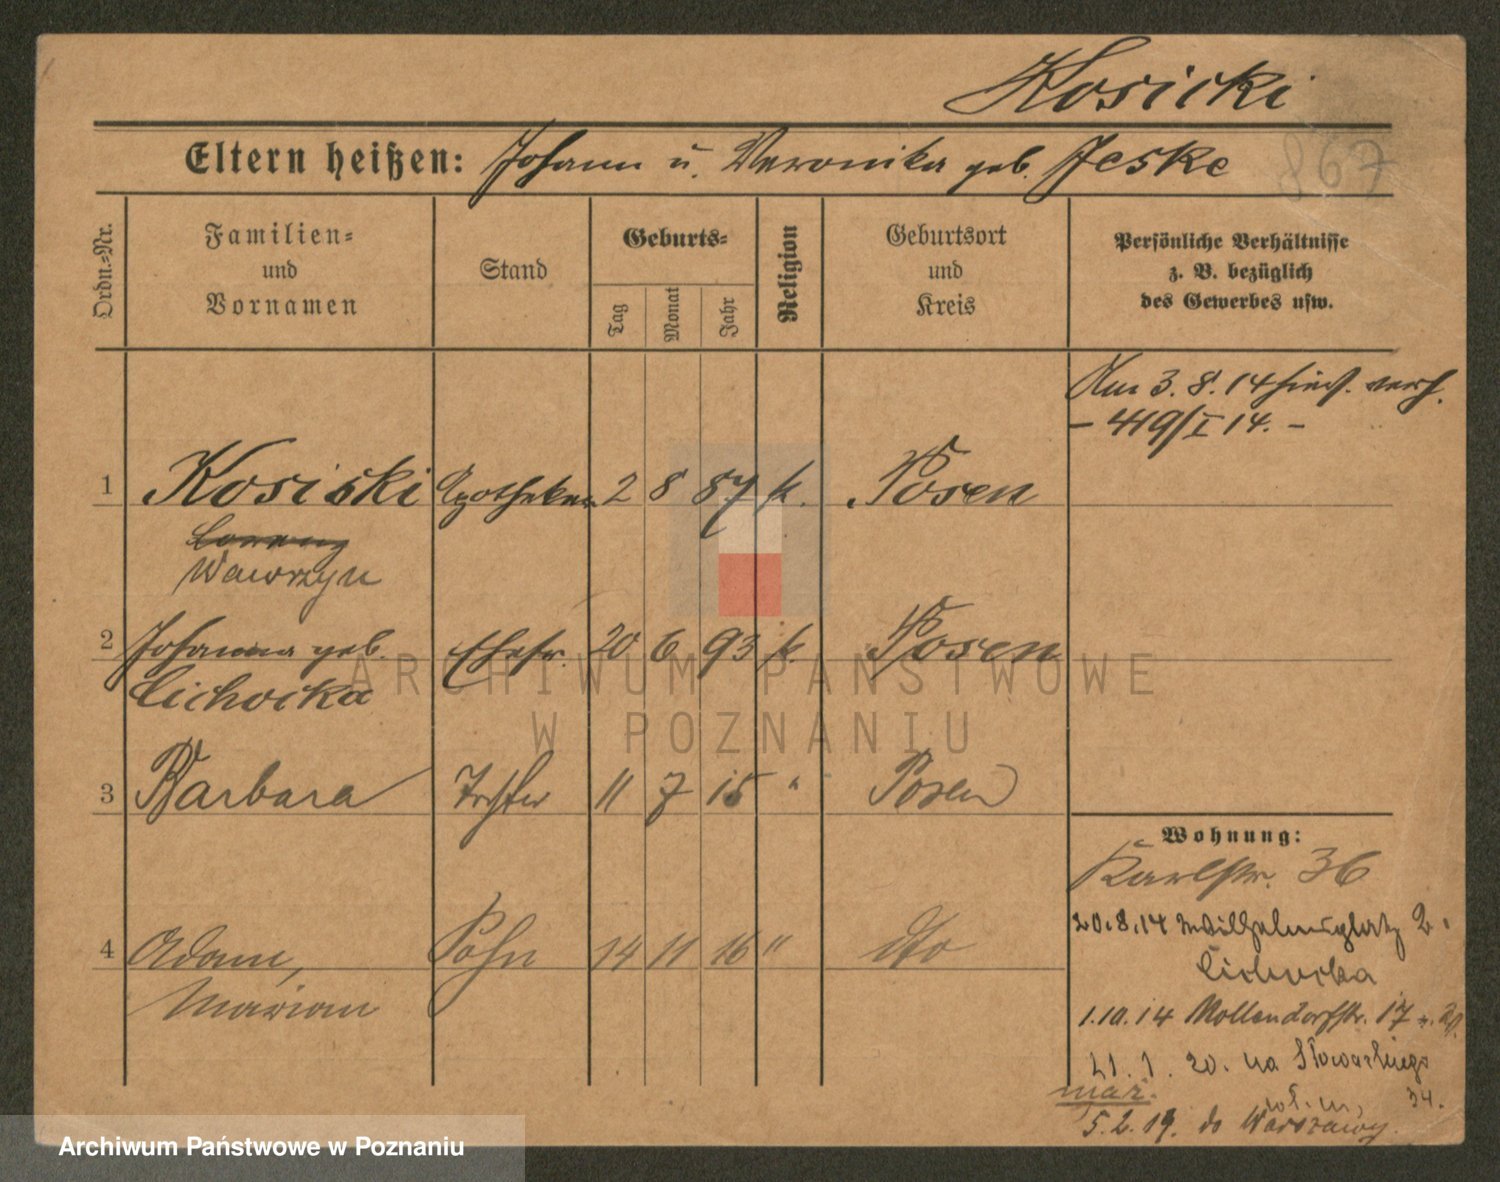 Kosicki
Eltern heißen: Johann u. Veronika geb. Jeske
867
Ordn.=Nr.
Familien=
und
Vornamen
Stand
Geburts=
Tag
Monat
Jahr
Religion
Geburtsort
und
Kreis
Persönliche Verhältnisse
z. B. bezüglich
des Gewerbes usw.
Am 3. 8. 14 hies. verh.
- 419/I 14. -
1 Kosicki Apotheker 2 8 87 k. Posen
Lorenz
Wawrzyn
2 Johanna geb. Ehefr. 20 6 93 k. Posen
Cichocka
3 Barbara Tochter 11 7 15 " Posen
Wohnung:
Karlstr. 36
20.8.14 Wilhelmsplatz 2.
Cichocka
4 Adam, Sohn 14 11 16 " dto
Marian
1.10.14 Mollendorfstr. 17
21. 1. 20. na Słowackiego
34.
mąż.
5.2.19. do Warszawy.
ARCHIWUM PAŃSTWOWE
W POZNANIU
Archiwum Państwowe w Poznaniu